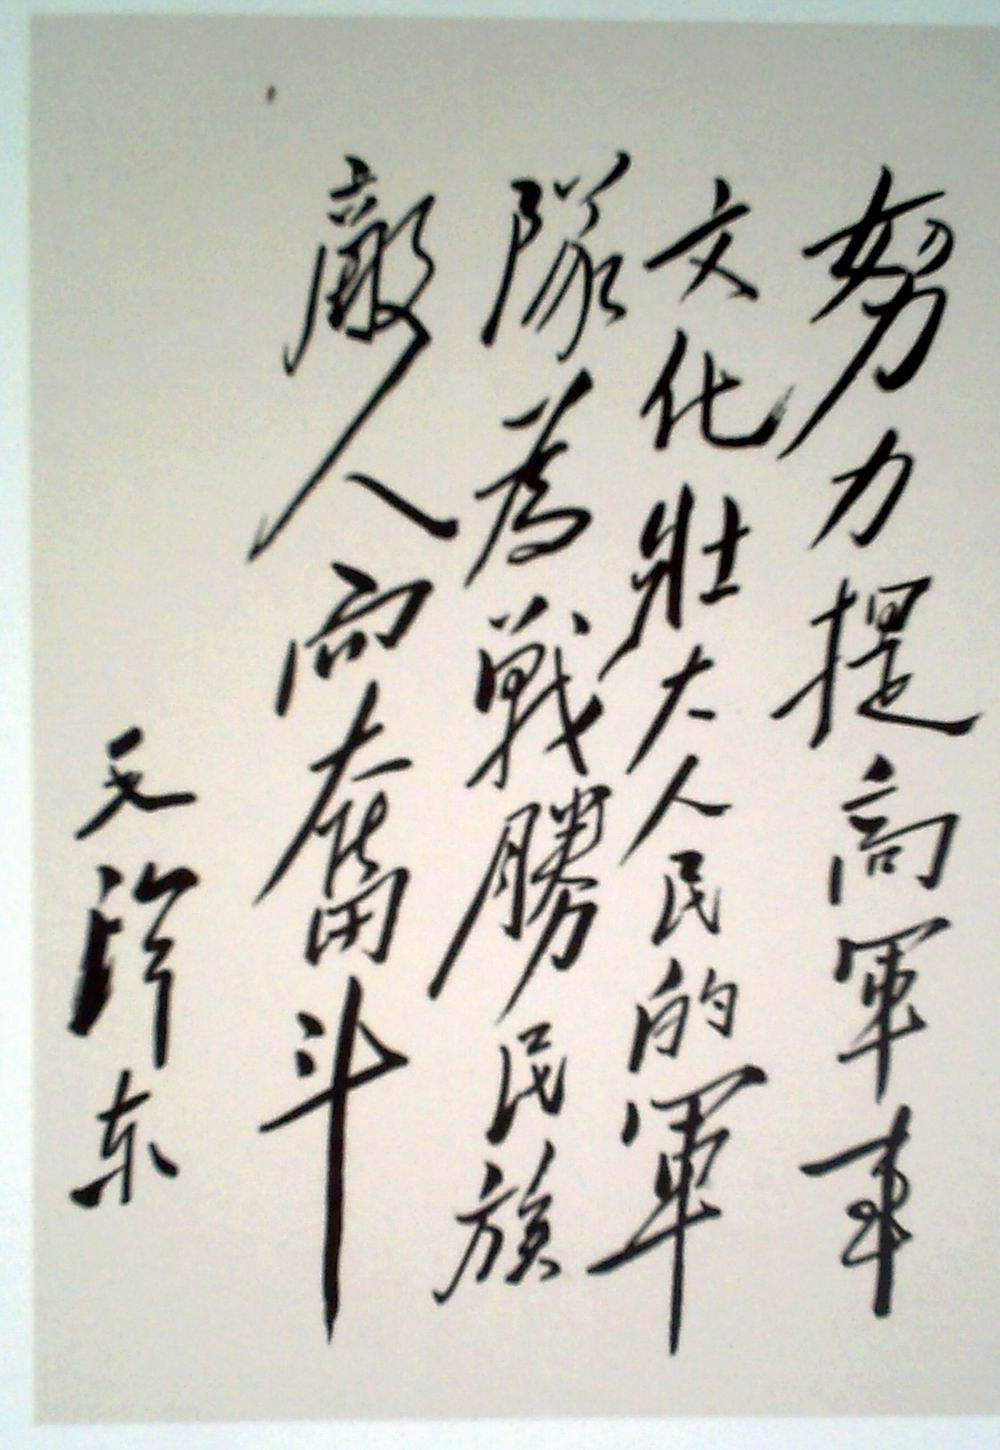 努力提高軍事
文化壯大人民的軍
隊為戰勝民族
敵人而奮斗
毛澤东